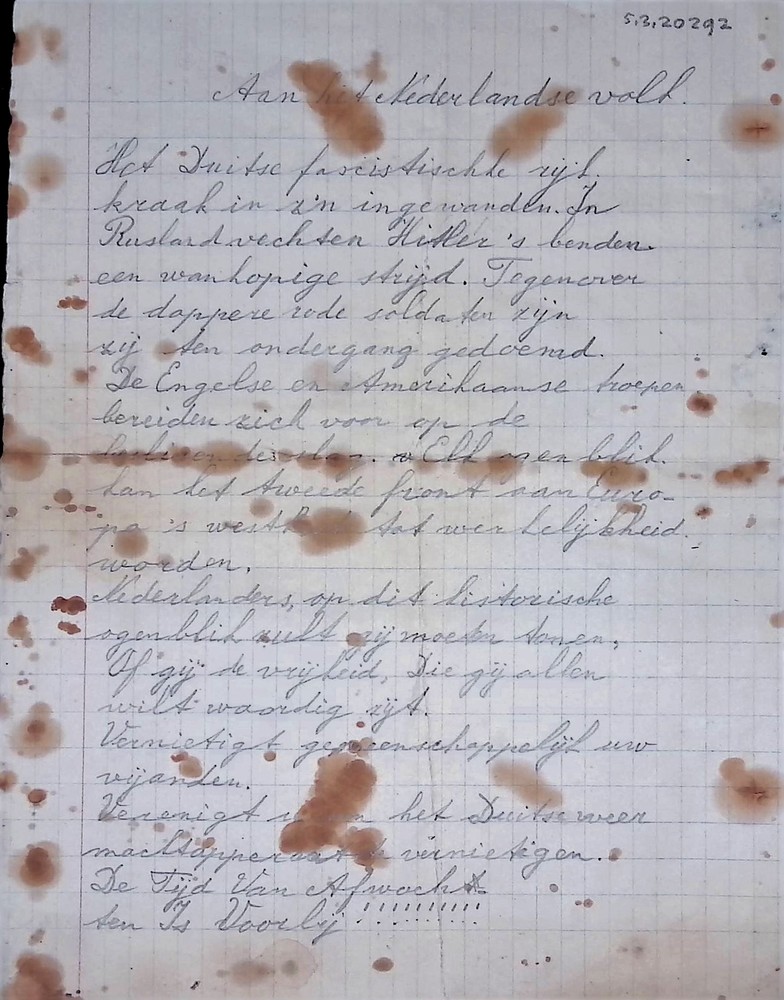 5.3.20292
Aan het Nederlandse volk.
Het Duitse fascistischke rijk.
kraak in z'n ingewanden. In
Rusland vechten Hitler's benden.
een wanhopige strijd. Tegenover
de dappere rode soldaten zijn
zij ten ondergang gedoemd.
De Engelse en Amerikaanse troepen
bereiden zich voor op de
slag. Elk ogenblik.
kan het tweede front aan Euro-
pa's westkust tot werkelijkheid.
worden.
Nederlanders, op dit historische
ogenblik zult gij moeten tonen,
Of gij de vrijheid, Die gij allen
wilt waardig zijt.
Vernietigt gemeenschappelijk uw
vijanden.
Verenigt u om het Duitse weer
machtapperaat te vernietigen.
De Tijd Van Afwach
ten Is Voorbij !!!!!!!!!!